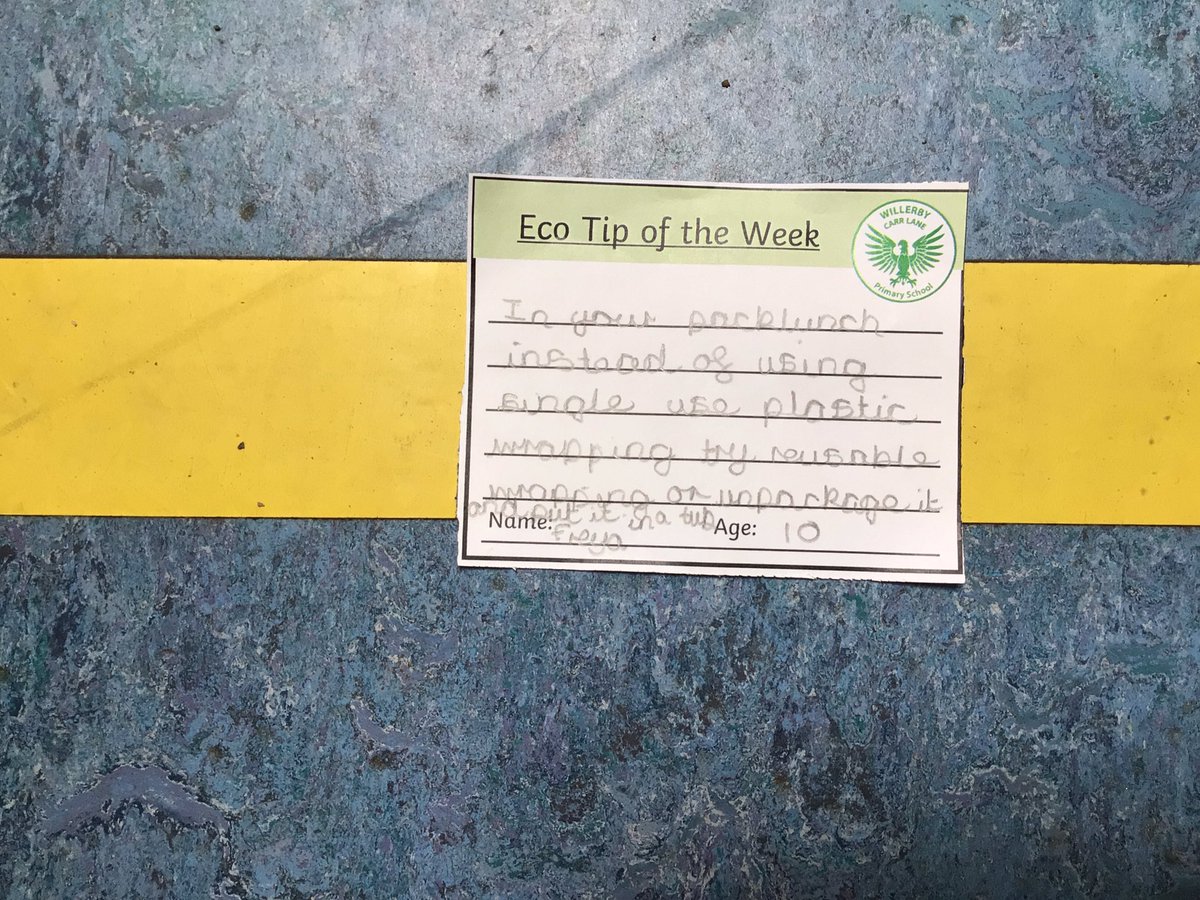 Eco Tip of the Week
WILLERBY
CARR LANE
Primary School
In your packlunch
instead of using
single use plastic
wrapping try reusable
wrapping or unpackage it
and put it in a tub
Name: Freya Age: 10